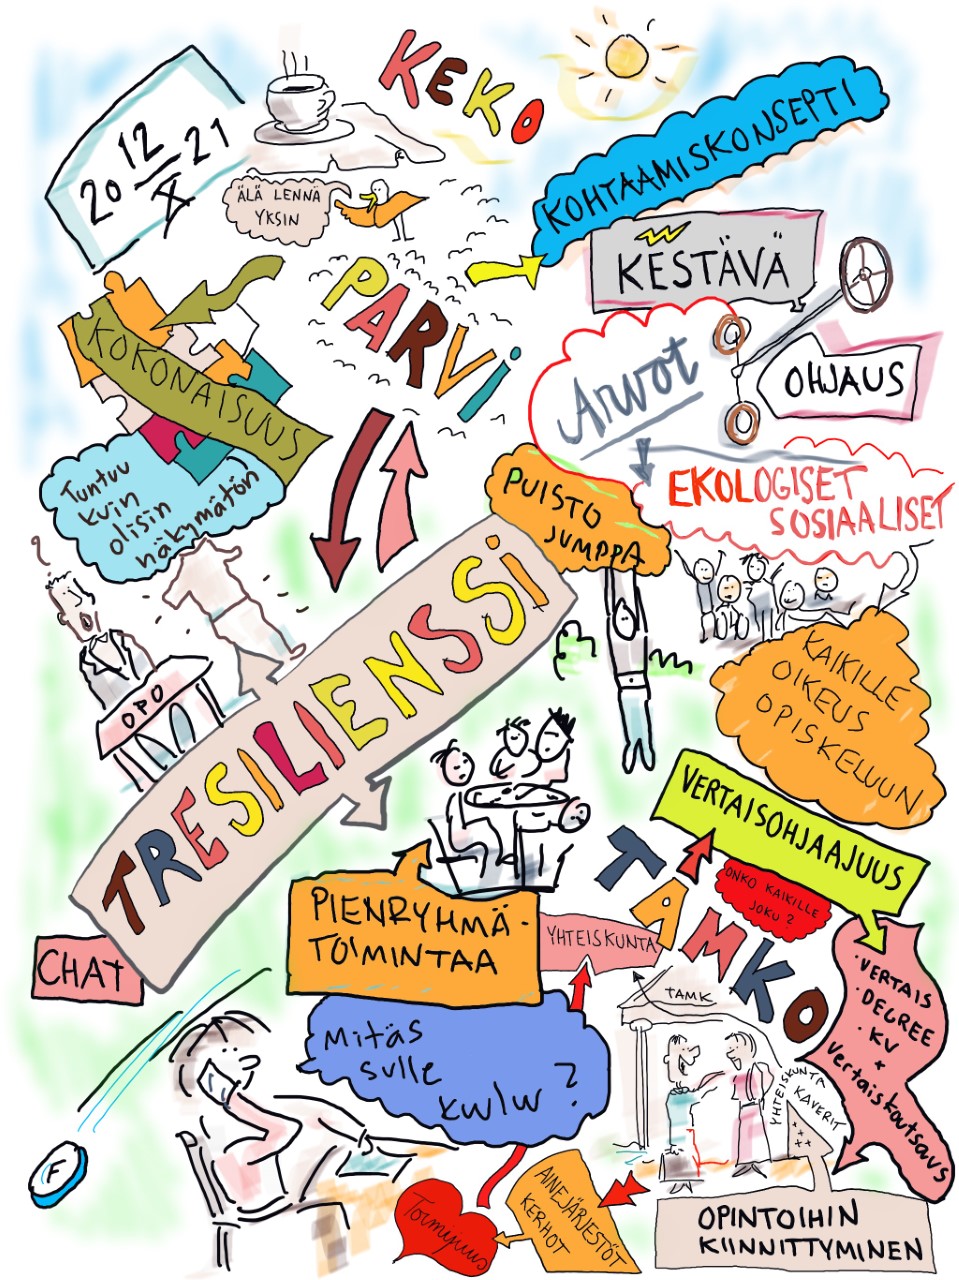 KEKO
20 12/X 21
ÄLÄ LENNÄ
YKSIN
KOHTAAMISKONSEPTI
KESTÄVÄ
PARVi
KOKONAISUUS
ARVOT
OHJAUS
Tuntuu
kuin
olisin
näkymätön
PUISTO
JUMPPA
EKOLOGISET
SOSIAALISET
?
OPO
TRESILIENSSi
KAIKILLE
OIKEUS
OPISKELUUN
VERTAISOHJAAJUUS
ONKO KAIKILLE
JOKU ?
TAMKO
PIENRYHMÄ-
TOIMINTAA
YHTEISKUNTA
CHAT
TAMK
• VERTAIS
• DEGREE
• KV
+
Vertaiskoutsaus
Mitäs
sulle
kuluu ?
YHTEISKUNTA
KAVERIT
F
Toimijuus
AINEJÄRJESTÖT
KERHOT
OPINTOIHIN
KIINNITTYMINEN